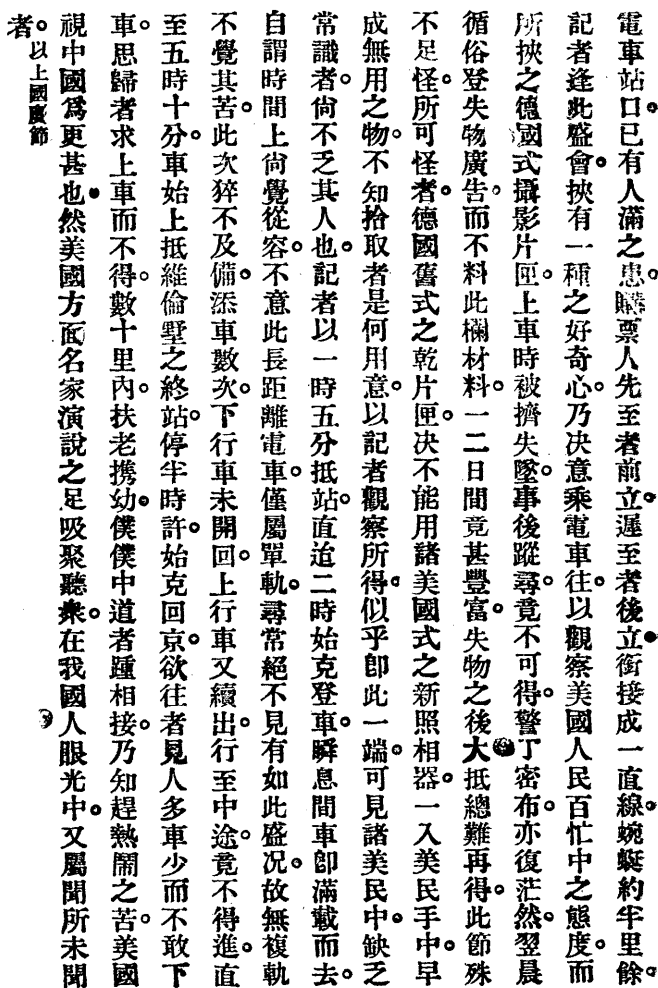 電車站口。已有人滿之患。購票人先至者前立。遲至者後立。銜接成一直線。蜿蜒約半里餘。
記者逢此盛會。挾有一種之好奇心。乃決意乘電車往。以觀察美國人民百忙中之態度。而
所挾之德國式攝影片匣。上車時被擠失墜。事後蹤尋。竟不可得。警丁密布。亦復茫然。翌晨
循俗登失物廣告。而不料此欄材料。一二日間竟甚豐富。失物之後。大抵總難再得。此節殊
不足怪。所可怪者。德國舊式之乾片匣。決不能用諸美國式之新照相器。一入美民手中。早
成無用之物。不知拾取者是何用意。以記者觀察所得。似乎卽此一端。可見諸美民中。缺乏
常識者。尙不乏其人也。記者以一時五分抵站。直迨二時始克登車。瞬息間車卽滿載而去。
自謂時間上尙覺從容。不意此長距離電車。僅屬單軌。尋常絕不見有如此盛况。故無複軌
不覺其苦。此次猝不及備。添車數次。下行車未開回。上行車又續出。行至中途。竟不得進。直
至五時十分。車始上抵維倫墅之終站。停半時許。始克回京。欲往者見人多車少而不敢下
車。思歸者求上車而不得。數十里內。扶老携幼。僕僕中道者踵相接。乃知趕熱鬧之苦。美國
視中國爲更甚也。然美國方面名家演說之足吸聚聽衆。在我國人眼光中。又屬聞所未聞
者。以上國慶節